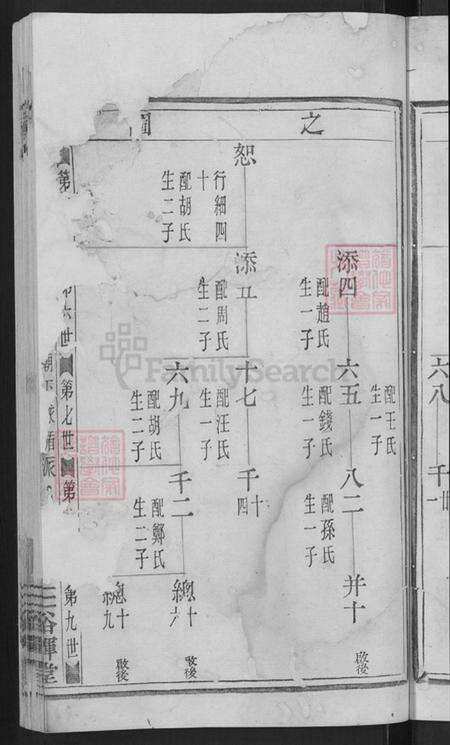 之
圖
恕
行細四
十
配胡氏
生二子
添四
配趙氏
生一子
添五
配周氏
生二子
六五
配王氏
生一子
配錢氏
生一子
十七
配汪氏
生一子
六九
配胡氏
生二子
八二
配孫氏
生一子
千十
四
千二
配鄭氏
生二子
并十
啟後
總十
六
啟後
十
九
啟後
第
六世
第七世
第
第九世
派
六八
千廿
一
FamilySearch